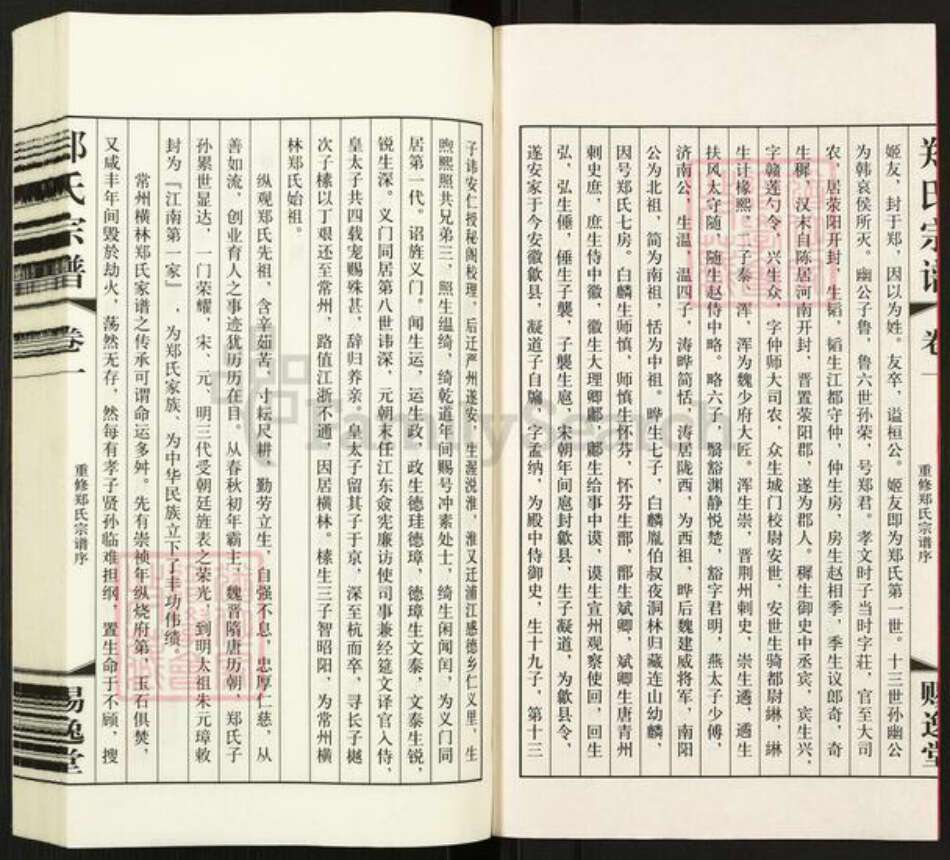 郑氏宗谱 卷一
重修郑氏宗谱序
赐逸堂
姬友，封于郑，因以为姓。友卒，谥桓公。姬友即为郑氏第一世。十三世孙幽公
为韩哀侯所灭。幽公子鲁，鲁六世孙荣，号郑君。孝文时子当时字荘，官至大司
农，居荥阳开封，生韬，韬生江都守仲，仲生房，房生赵相季，季生议郎奇，奇
生穉，汉末自陈居河南开封，晋置荥阳郡，遂为郡人。穉生御史中丞宾，宾生兴，
字赣莲勺令，兴生众，字仲师大司农，众生城门校尉安世，安世生骑都尉綝，綝
生计掾熙，二子泰、浑，浑为魏少府大匠。浑生崇，晋荆州刺史，崇生遹，遹生
扶风太守随，随生赵侍中略。略六子，翳豁渊静悦楚，豁字君明，燕太子少傅，
济南公，生温，温四子，涛晔简恬，涛居陇西，为西祖，晔后魏建威将军，南阳
公为北祖，简为南祖，恬为中祖。晔生七子，白麟胤伯叔夜洞林归藏连山幼麟，
因号郑氏七房。白麟生师慎，师慎生怀芬，怀芬生鄑，鄑生斌卿，斌卿生唐青州
刺史庶，庶生侍中徽，徽生大理卿鄘，鄘生给事中谟，谟生宣州观察使回，回生
弘，弘生倕，倕生子襲，子襲生扈，宋朝年间扈封歙县，生子凝道，为歙县令，
遂安家于今安徽歙县，凝道子自牖，字孟纳，为殿中侍御史，生十九子，第十三
子讳安仁授秘阁校理，后迁严州遂安，生渥浼淮，淮又迁浦江感德乡仁义里，生
煦熙照共兄弟三，照生缊绮，绮乾道年间赐号冲素处士，绮生闲闻闰，为义门同
居第一代。诏旌义门。闻生运，运生政，政生德珪德璋，德璋生文泰，文泰生锐，
锐生深。义门同居第八世讳深。元朝末任江东佥宪廉访使司事兼经筵文译官入侍，
皇太子共四载宠赐殊甚，辞归养亲，皇太子留其子于京，深至杭而卒，寻长子樾
次子榡以丁艰还至常州，路值江浙不通，因居横林。榡生三子智昭阳，为常州横
林郑氏始祖。
纵观郑氏先祖，含辛茹苦，寸耘尺耕，勤劳立生，自强不息，忠厚仁慈，从
善如流，创业育人之事迹犹历历在目。从春秋初年霸主，魏晋隋唐历朝，郑氏子
孙累世显达，一门荣耀，宋、元、明三代受朝廷旌表之荣光，到明太祖朱元璋敕
封为『江南第一家』，为郑氏家族、为中华民族立下了丰功伟绩。
常州横林郑氏家谱之传承可谓命运多舛。先有崇祯年纵烧府第，玉石俱焚，
又咸丰年间毁於劫火，荡然无存，然每有孝子贤孙临难担纲，置生命于不顾，搜
郑氏宗谱 卷一
重修郑氏宗谱序
赐逸堂
FamilySearch